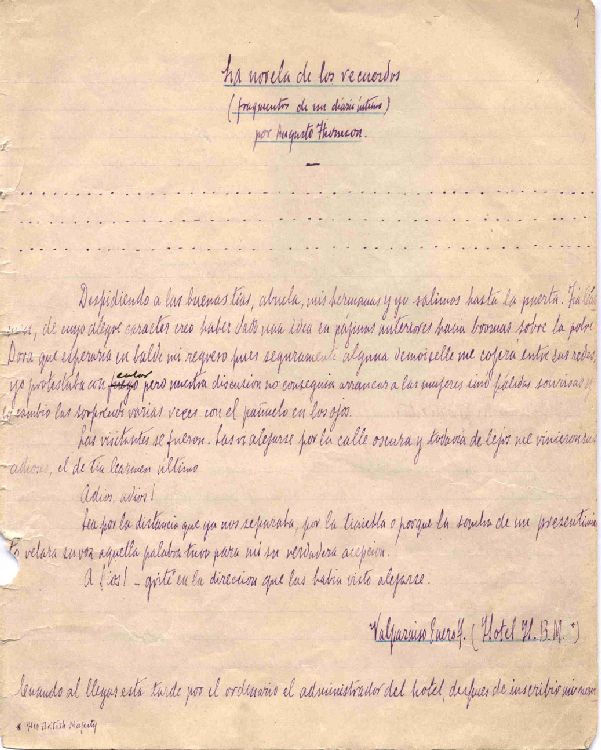 1
La novela de los recuerdos
(fragmentos de un diario íntimo)
por Augusto Thomson.
Despidiendo a las buenas tías, abuela, mis hermanas y yo salimos hasta la puerta. Tía
de cuyo alegre caracter creo haber dado una idea en páginas anteriores hacía bromas sobre la pobre
Dora que esperaría en balde mi regreso pues seguramente alguna demoiselle me cojerá entre sus redes,
yo protestaba con calor pero nuestra discusion no conseguia arrancar a las mujeres sinó pálidas sonrisas
cambio las sorprendí varias veces con el pañuelo en los ojos.
Las visitantes se fueron. Las ví alejarse por la calle oscura y todavía de lejos me vinieron sus
adioses, el de tía Carmen último
Adios, adios!
Sea por la distancia que ya nos separaba, por la tiniebla o porque la sombra de un presentimien
to velara su voz aquella palabra tuvo para mí su verdadera acepcion.
A Dios! – grité en la direccion que las habia visto alejarse.
Valparaiso Enero 7. (Hotel H. B. M. *)
Cuando al llegar esta tarde por el ordinario el administrador del hotel, despues de inscribir mi nom
* His British Majesty